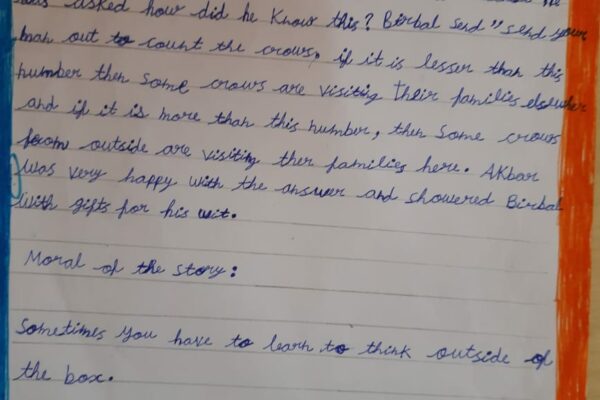 was asked how did he know this? Birbal send "send your
man out to count the crows, if it is lesser than this
number then some crows are visiting their families elsewher
and if it is more than this number, then some crows
from outside are visiting ther families here. Akbar
was very happy with the answer and showered Birbal
with gifts for his wit.
Moral of the story:
Sometimes you have to learn to think outside of
the box.